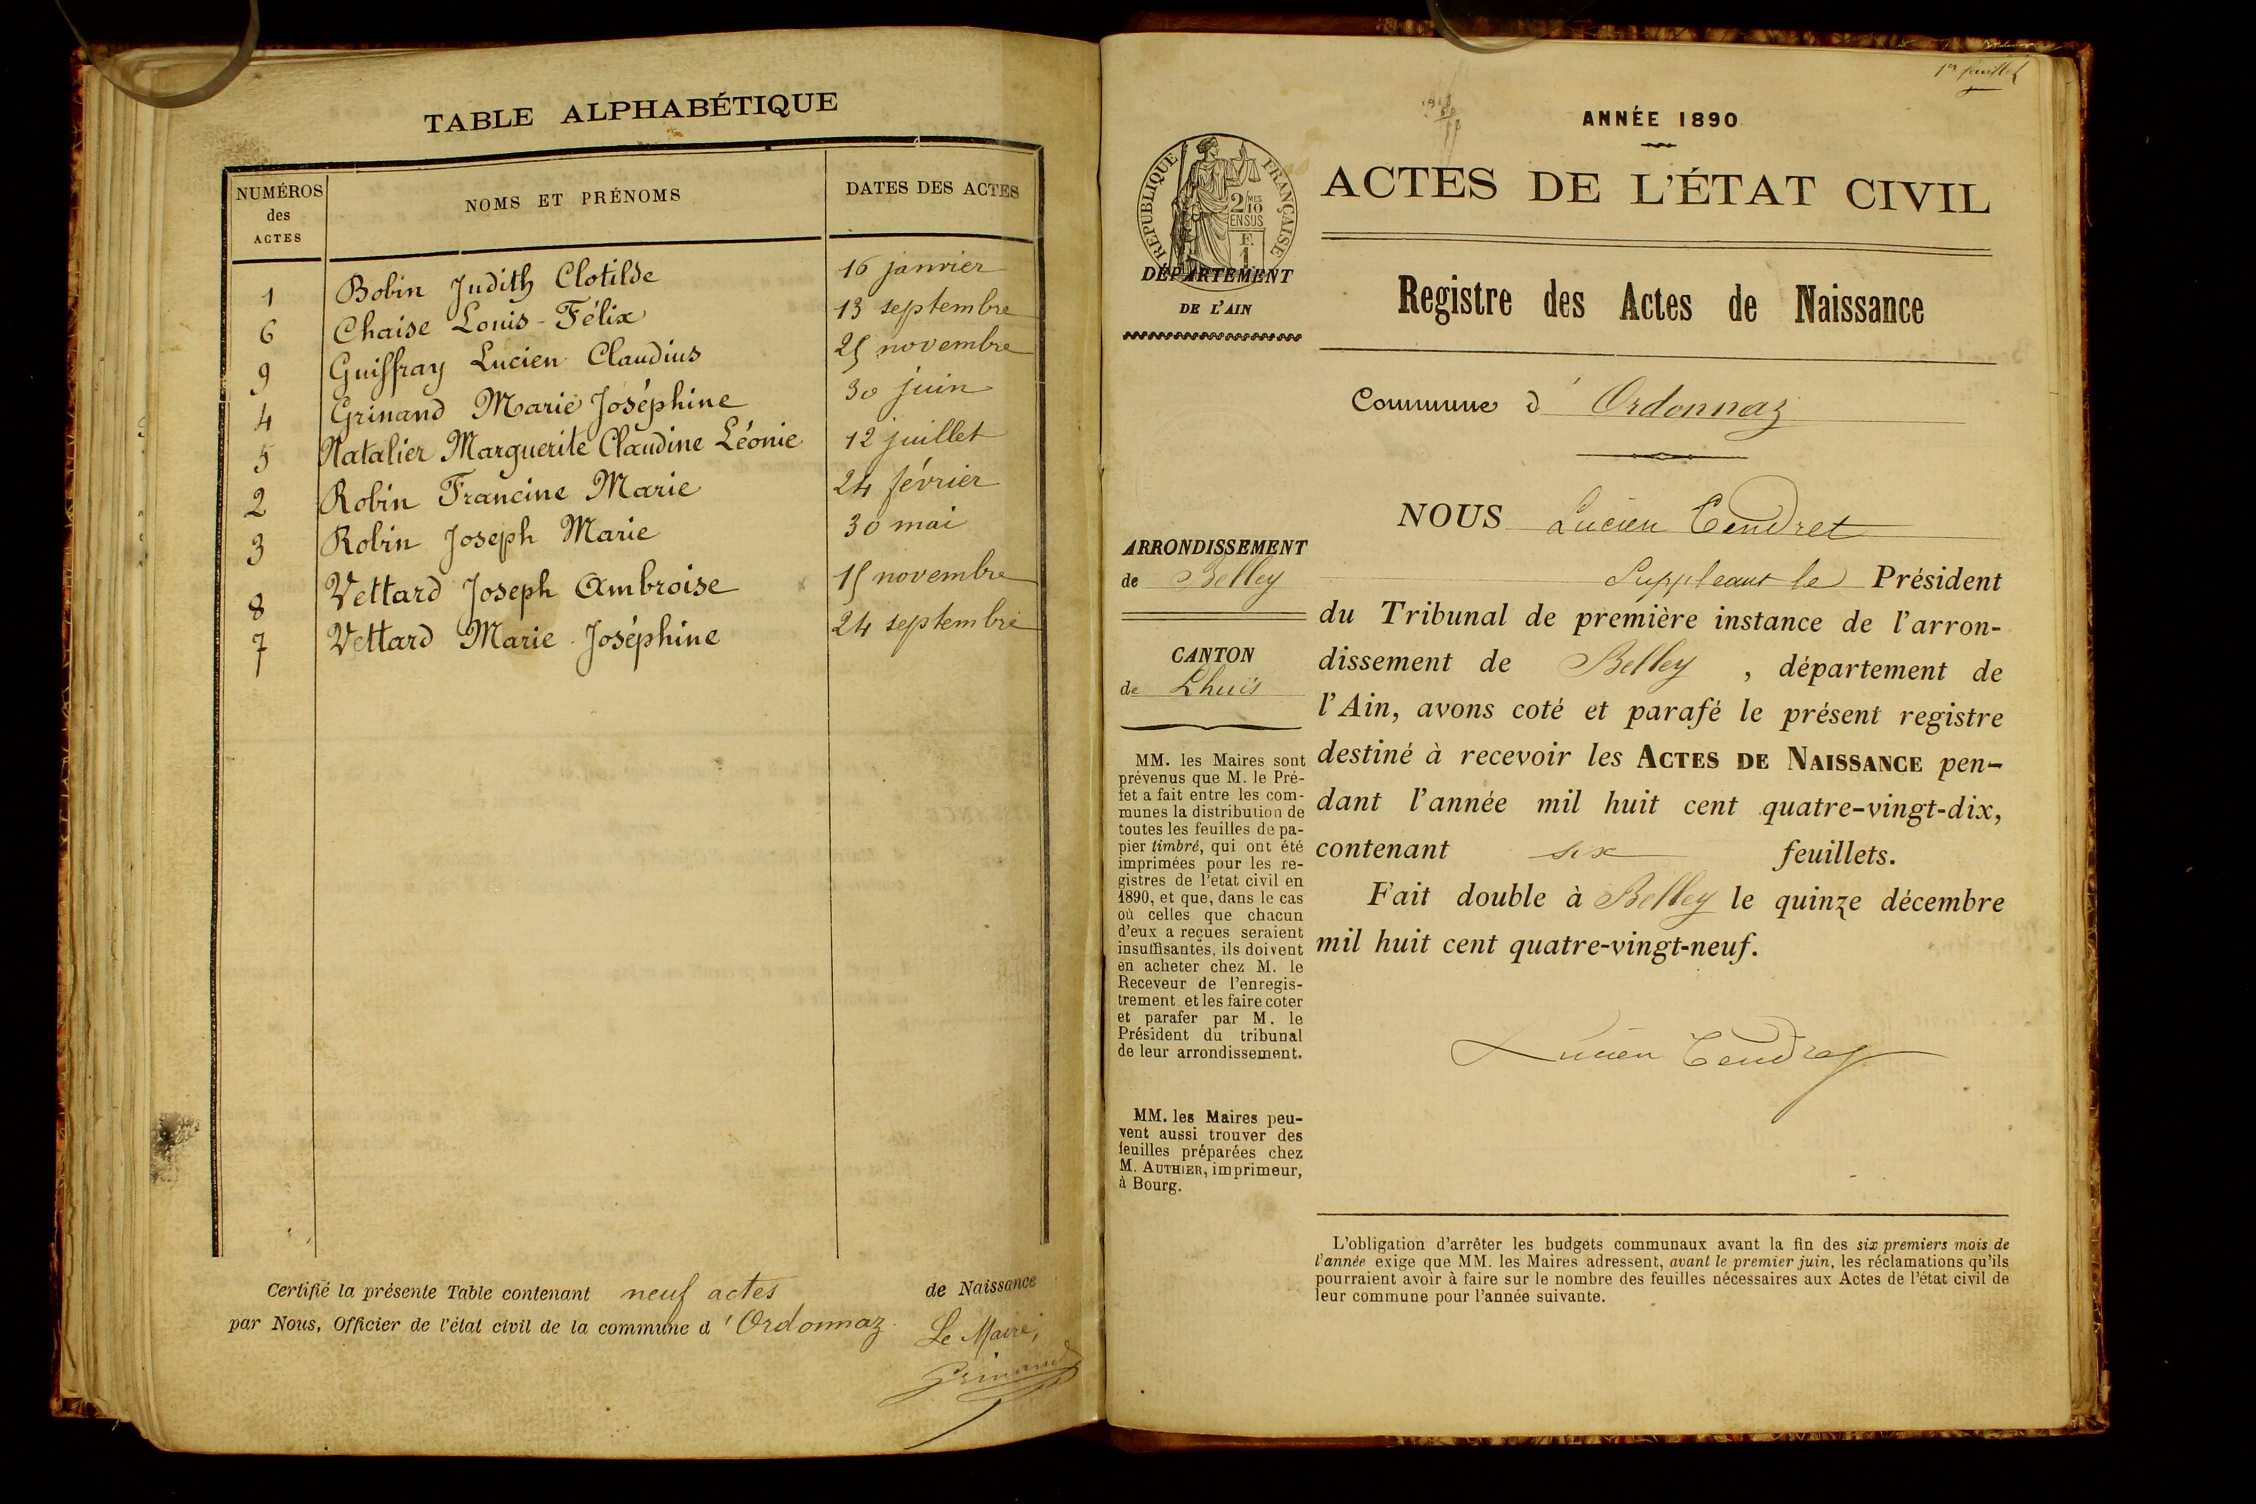 TABLE ALPHABÉTIQUE
NUMÉROS des ACTES NOMS ET PRÉNOMS DATES DES ACTES
1 Bobin Judith Clotilde 16 janvier
6 Chaise Louis-Félix 13 septembre
9 Guiffray Lucien Claudius 25 novembre
4 Grinand Marie Joséphine 30 juin
5 Natalier Marguerite Claudine Léonie 12 juillet
2 Robin Francine Marie 24 février
3 Robin Joseph Marie 30 mai
8 Vettard Joseph Ambroise 15 novembre
7 Vettard Marie Joséphine 24 septembre
Certifié la présente Table contenant neuf actes de Naissance
par Nous, Officier de l'état civil de la commune d'Ordonnaz
Le Maire,
Grinand
1er feuillet
ANNÉE 1890
RÉPUBLIQUE FRANÇAISE
2/10MES
EN SUS
F.
1
ACTES DE L'ÉTAT CIVIL
DÉPARTEMENT
DE L'AIN
Registre des Actes de Naissance
Commune d'Ordonnaz
NOUS Lucien Tendret
Suppléant le Président
du Tribunal de première instance de l'arron-
dissement de Belley, département de
l'Ain, avons coté et parafé le présent registre
destiné à recevoir les ACTES DE NAISSANCE pen-
dant l'année mil huit cent quatre-vingt-dix,
contenant six feuillets.
Fait double à Belley le quinze décembre
mil huit cent quatre-vingt-neuf.
Lucien Tendret
ARRONDISSEMENT
de Belley
CANTON
de Lhuis
MM. les Maires sont
prévenus que M. le Pré-
fet a fait entre les com-
munes la distribution de
toutes les feuilles de pa-
pier timbré, qui ont été
imprimées pour les re-
gistres de l'etat civil en
1890, et que, dans le cas
où celles que chacun
d'eux a reçues seraient
insuffisantes, ils doivent
en acheter chez M. le
Receveur de l'enregis-
trement et les faire coter
et parafer par M. le
Président du tribunal
de leur arrondissement.
MM. les Maires peu-
vent aussi trouver des
feuilles préparées chez
M. AUTHIER, imprimeur,
à Bourg.
L'obligation d'arrêter les budgets communaux avant la fin des six premiers mois de
l'année exige que MM. les Maires adressent, avant le premier juin, les réclamations qu'ils
pourraient avoir à faire sur le nombre des feuilles nécessaires aux Actes de l'état civil de
leur commune pour l'année suivante.